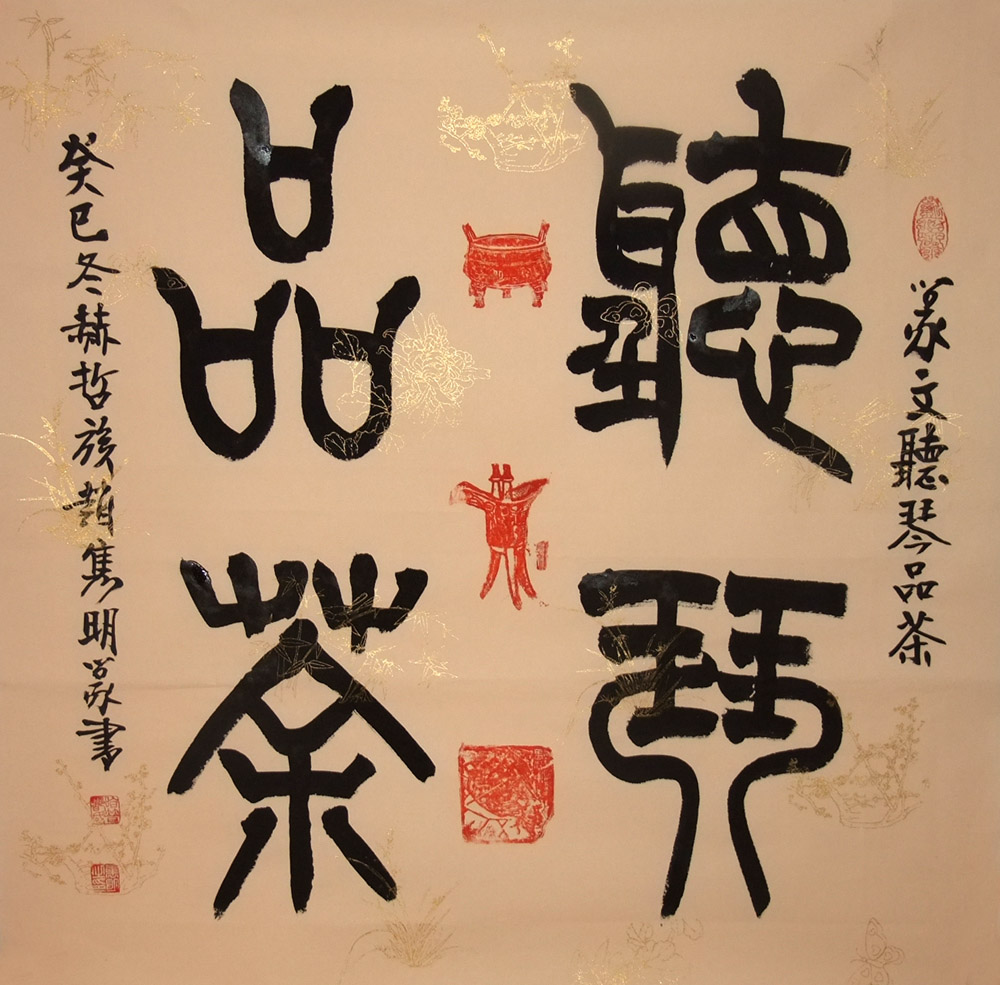 篆文聽琴品茶
聽琴
品茶
癸巳冬赫哲族趙雋明篆書